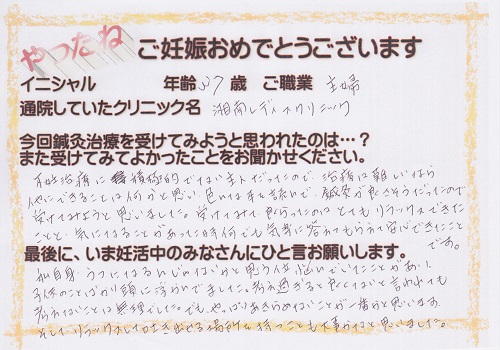 やったね
ご妊娠おめでとうございます
イニシャル 年齢 37 歳 ご職業 主婦
通院していたクリニック名 湘南レディースクリニック
今回鍼灸治療を受けてみようと思われたのは…？
また受けてみてよかったことをお聞かせください。
不妊治療に積極的でない主人だったので、治療は難しいなら
他にできることは何かと思い、色々な本を読んで、鍼灸が良さそうだったので
受けてみようと思いました。受けてみて良かったのはとてもリラックスできた
ことと、気になることがあった時何でも気軽に答えてもらえて安心できたこと
です。
最後に、いま妊活中のみなさんにひと言お願いします。
私自身、うつになるんじゃないかと思う位悩んでいたことがあり、
子供のことばかり頭に浮かんでました。考え過ぎると良くないと言われても
考えないことは無理でした。でも、やっぱりあきらめないことが一番かと思います。
そして、リラックスして吐き出せる場所を持つことも大事かなと思いました。